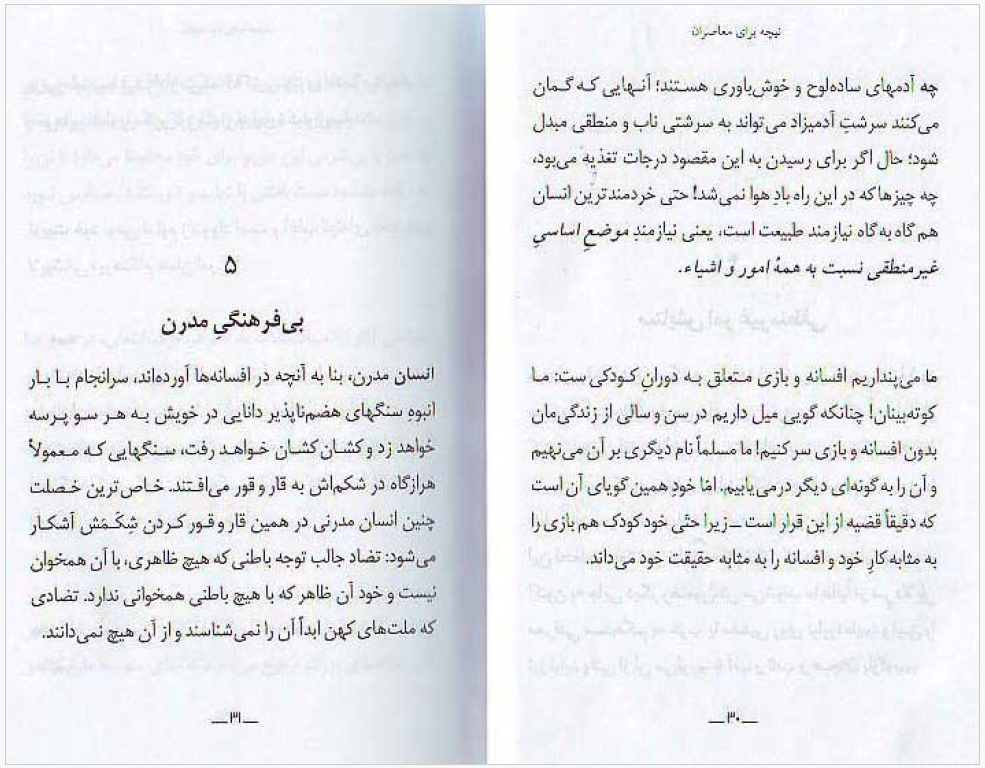 نیچه برای معاصران
چه آدمهای ساده‌لوح و خوش‌باوری هستند؛ آنهایی که گمان
می‌کنند سرشتِ آدمیزاد می‌تواند به سرشتی ناب و منطقی مبدل
شود؛ حال اگر برای رسیدن به این مقصود درجات تغذیه می‌بود،
چه چیزها که در این راه بادِ هوا نمی‌شد! حتی خردمندترین انسان
هم گاه به گاه نیازمند طبیعت است، یعنی نیازمندِ موضعِ اساسیِ
غیرمنطقی نسبت به همهٔ امور و اشیاء.
ما می‌پنداریم افسانه و بازی متعلق به دورانِ کودکی ست: ما
کوته‌بینان! چنانکه گویی میل داریم در سن و سالی از زندگی‌مان
بدون افسانه و بازی سر کنیم! ما مسلماً نام دیگری بر آن می‌نهیم
و آن را به گونه‌ای دیگر درمی‌یابیم. امّا خودِ همین گویای آن است
که دقیقاً قضیه از این قرار است ــ زیرا حتّی خود کودک هم بازی را
به مثابه کارِ خود و افسانه را به مثابه حقیقت خود می‌داند.
ــ ۳۰ ــ
۵
بی‌فرهنگیِ مدرن
انسان مدرن، بنا به آنچه در افسانه‌ها آورده‌اند، سرانجام با بار
انبوهِ سنگهای هضم‌ناپذیر دانایی در خویش به هر سو پرسه
خواهد زد و کشان کشان خواهد رفت، سنگهایی که معمولاً
هرازگاه در شکم‌اش به قار و قور می‌افتند. خاص‌ترین خصلت
چنین انسان مدرنی در همین قار و قور کردن شِکَمَش آشکار
می‌شود: تضاد جالب توجه باطنی که هیچ ظاهری، با آن همخوان
نیست و خود آن ظاهر که با هیچ باطنی همخوانی ندارد. تضادی
که ملت‌های کهن ابداً آن را نمی‌شناسند و از آن هیچ نمی‌دانند.
ــ ۳۱ ــ